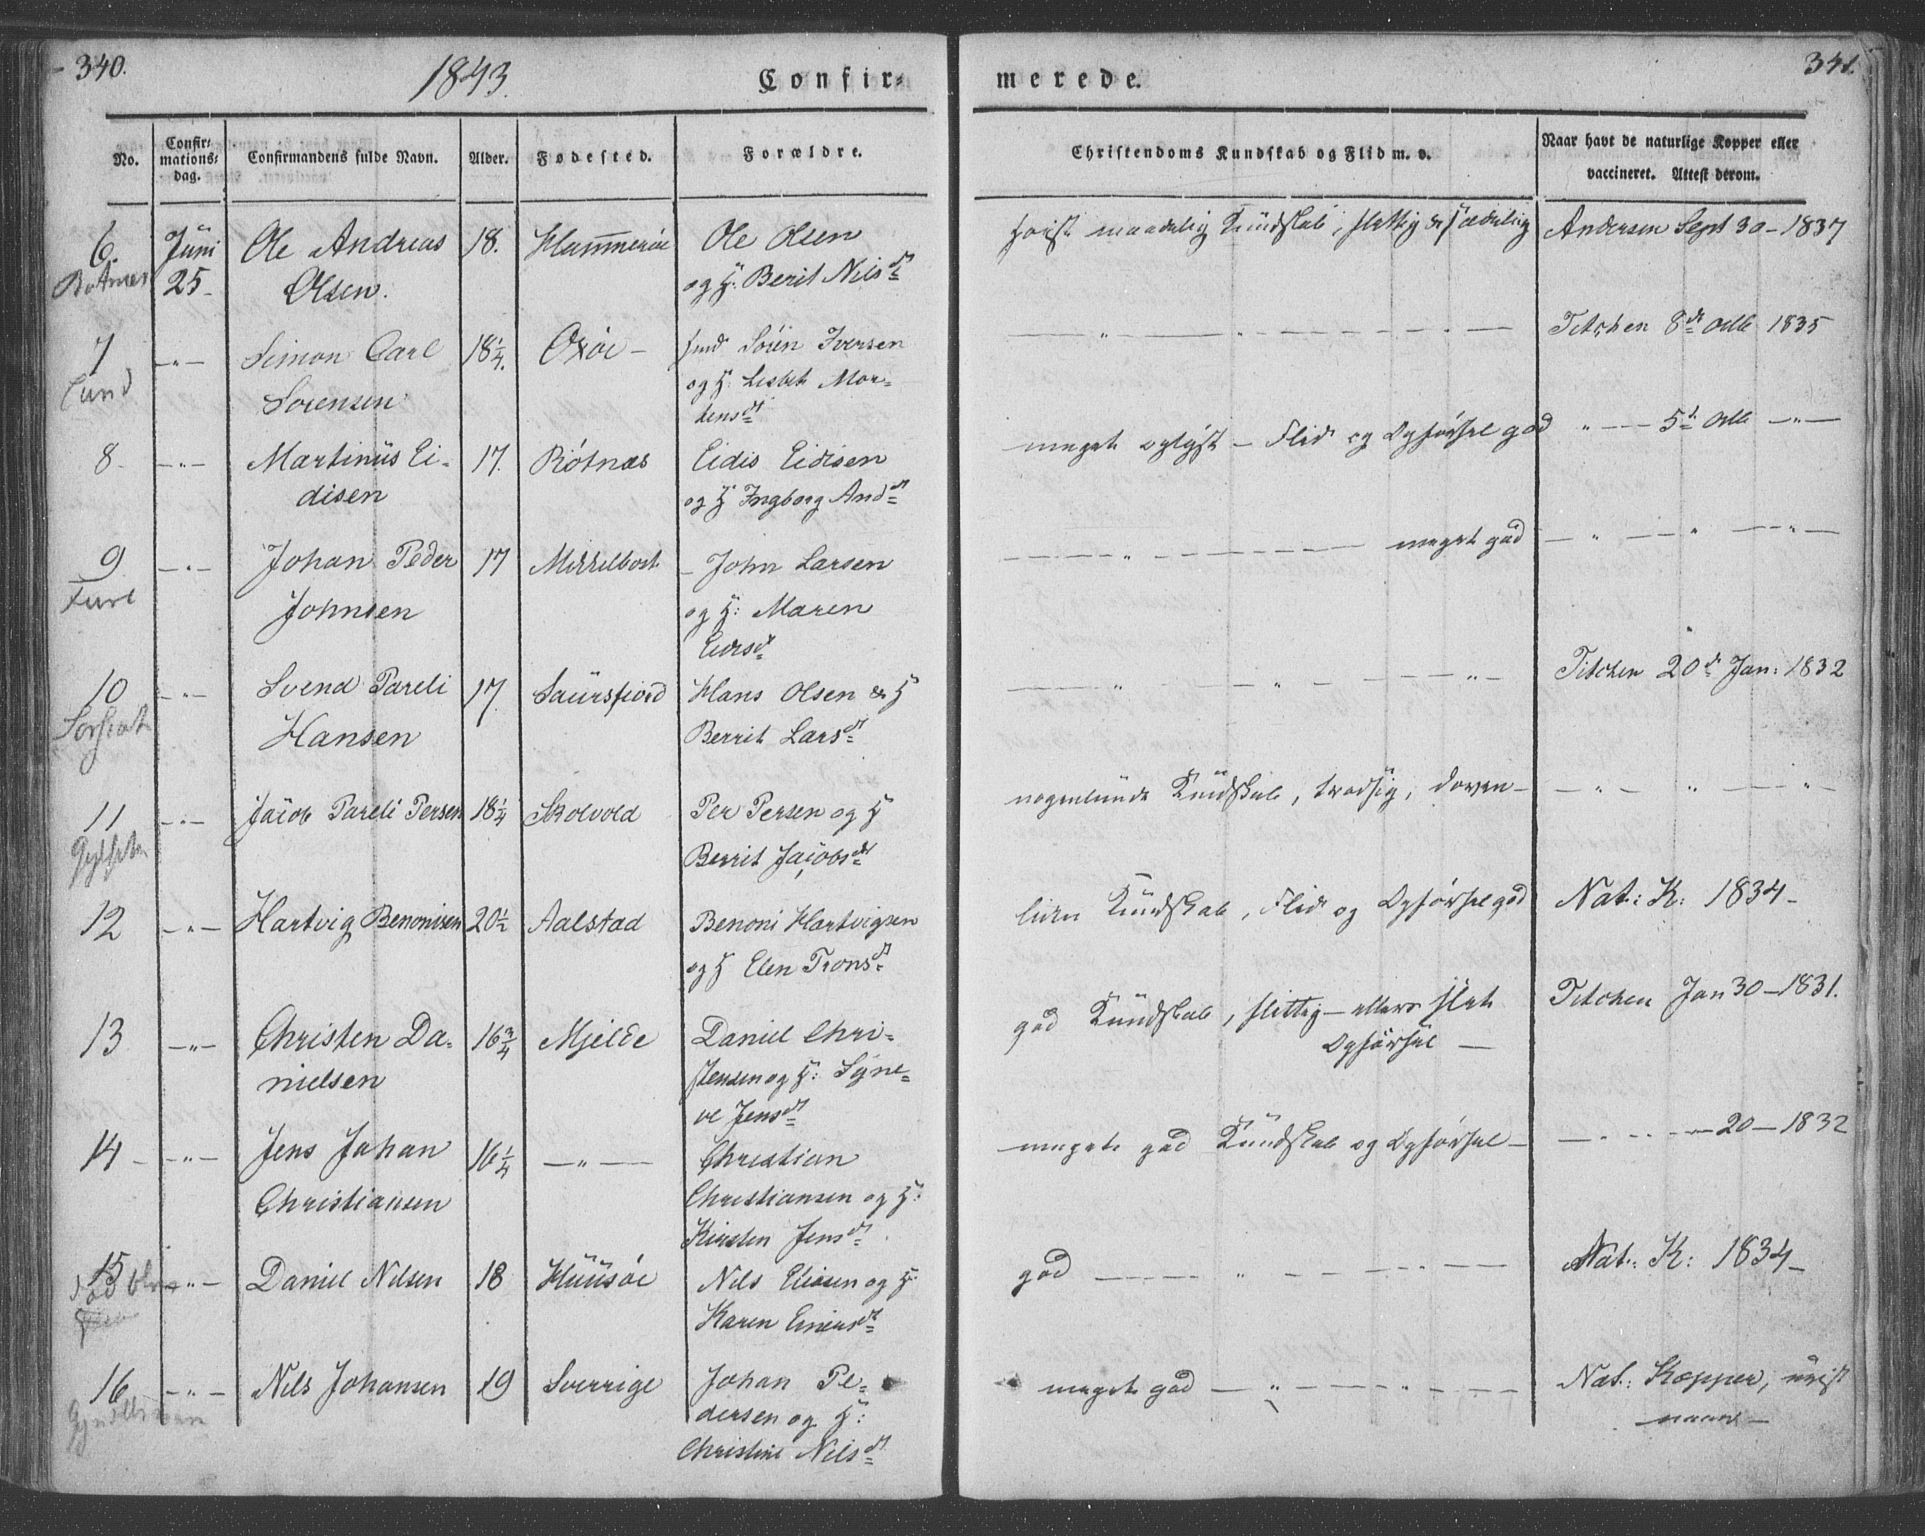 340.
1843.
Confir-
merede.
341.
No.
Confir-
mations-
dag.
Confirmandens fulde Navn.
Alder.
Fødested.
Forældre.
Christendoms Kundskab og Flid m. v.
Naar havt de naturlige Kopper eller
vaccineret. Attest derom.
6.
Juni
25
Ole Andreas
Olsen.
18.
Hammerøe
Ole Olsen
og H: Berit Nilsdt
maadelig Kundskab, flittig & sædelig
Andersen Sept 30 - 1837
7
Lund
- " -
Simon Carl
Sørensen
18 1/4.
Oxøe -
Søren Iversen
og H: Lisbet Mor-
tensdt
- " - " -
Titchen 8de 1835
8
- " -
Martinus Ei-
disen
17.
Røtnæs
Eidis Eidisen
og H Ingborg Anddt
meget oplyst - Flid og Opførsel god
" - 5te - " -
9
- " -
Johan Peder
Johnsen
17
Middelbost
John Larsen
og H: Maren
Eidsdt
- " - meget god
- " - " - " -
10
- " -
Svend Pareli
Hansen
17.
Saursfjord
Hans Olsen & H
Berrit Larsdt
- " - " - " -
Titchen 20de Jan: 1832
11
- " -
Jacob Pareli Persen
18 1/4
Skolvold
Per Persen og H
Berrit Jacobsdt
nogenlunde Kundskab, trodsig, doven -
- " - " - " -
12
- " -
Hartvig Benonisen
20 1/2
Aalstad
Benoni Hartvigsen
og H Elen Tronsdt
liden Kundskab, Flid og Opførsel god
Nat: K: 1834 -
13
- " -
Christen Da-
nielsen
16 3/4
Mjelde
Daniel Chri-
stensen og H: Syne-
ve Jensdt
god Kundskab, flittig - ellers slet
Opførsel -
Titchen Jan 30 - 1831.
14 -
- " -
Jens Johan
Christiansen
16 1/4
- " -
Christian
Christiansen og H:
Kirsten Jensdt
meget god Kundskab og Opførsel -
- 20 - 1832
15
- " -
Daniel Nilsen
18
Huusøe
Nils Eliasen og H:
Karen Einersdt
god - " - " -
Nat: K: 1834 -
16
- " -
Nils Johansen
19
Sverrige
Johan Pe-
dersen og H:
Christine Nilsdt
meget god - " - " -
Nat: Kopper, uvist
naar -